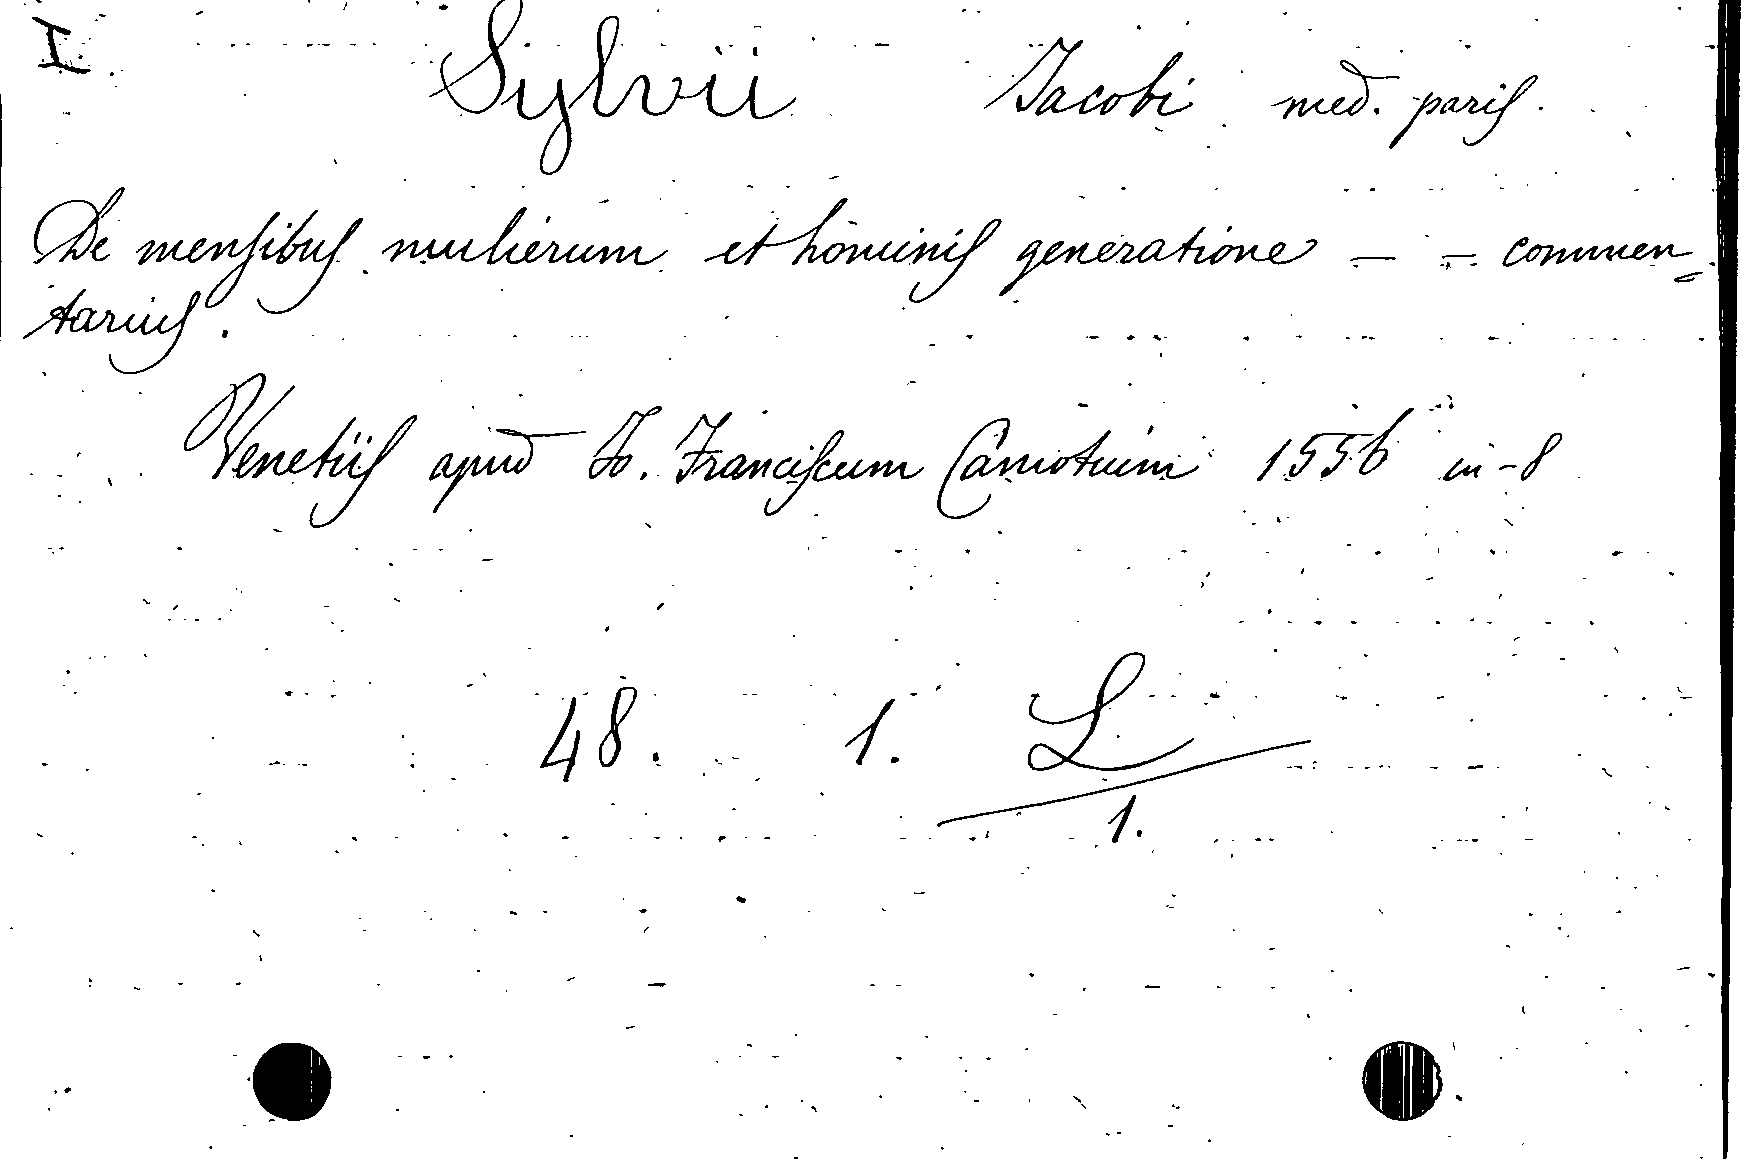 I
Sylvii Jacobi med. paris.
De mensibus mulierum et hominis generatione — — commen=
tarius.
Venetiis apud Jo. Franciscum Camotium 1556 in-8
48. 1. L
1.